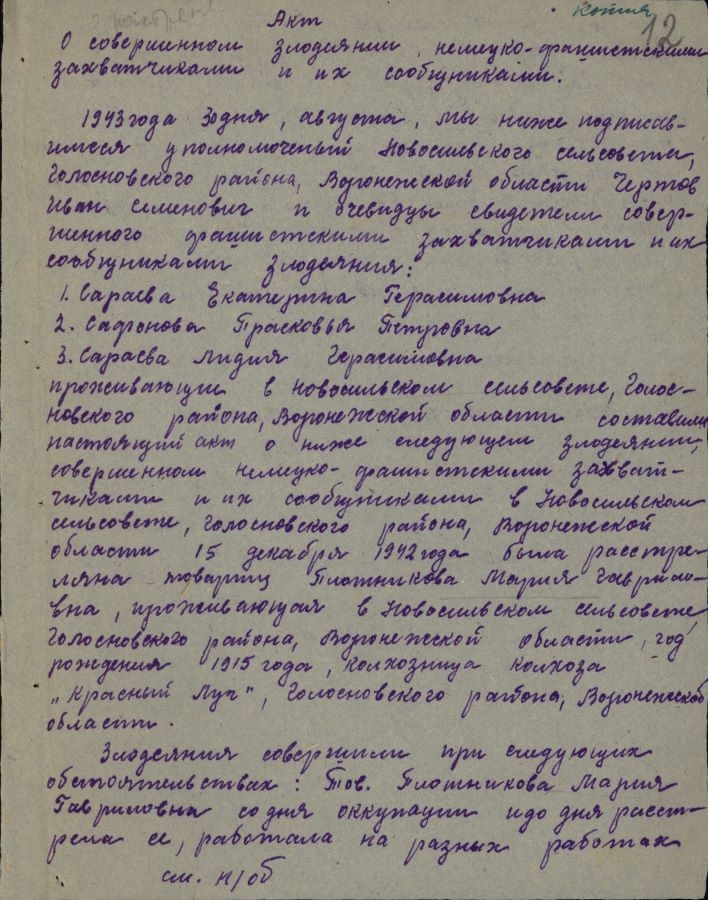 копия
12
Акт
О совершенном злодеянии, немецко-фашистскими
захватчиками и их сообщниками.
1943 года 30 дня, августа, мы ниже подписав-
шиеся уполномоченный Новосильского сельсовета,
Голосновского района, Воронежской области Чертов
Иван Семенович и очевидцы свидетели совер-
шенного фашистскими захватчиками и их
сообщниками злодеяния:
1. Сараева Екатерина Герасимовна
2. Сафонова Прасковья Петровна
3. Сараева Лидия Герасимовна
проживающии в Новосильском сельсовете, Голос-
новского района, Воронежской области составили
настоящий акт о ниже следующем злодеянии,
совершенном немецко-фашистскими захват-
чиками и их сообщниками в Новосильском
сельсовете, Голосновского района, Воронежской
области 15 декабря 1942 года была расстре-
ляна товарищ Плотникова Мария Гаврило-
вна, проживающая в Новосильском сельсовете,
Голосновского района, Воронежской области, год
рождения 1915 года, колхозница колхоза
"Красный Луч", Голосновского района, Воронежской
области.
Злодеяния совершили при следующих
обстоятельствах: Тов. Плотникова Мария
Гавриловна со дня оккупации и до дня расст-
рела ее, работала на разных работах
см. н/об